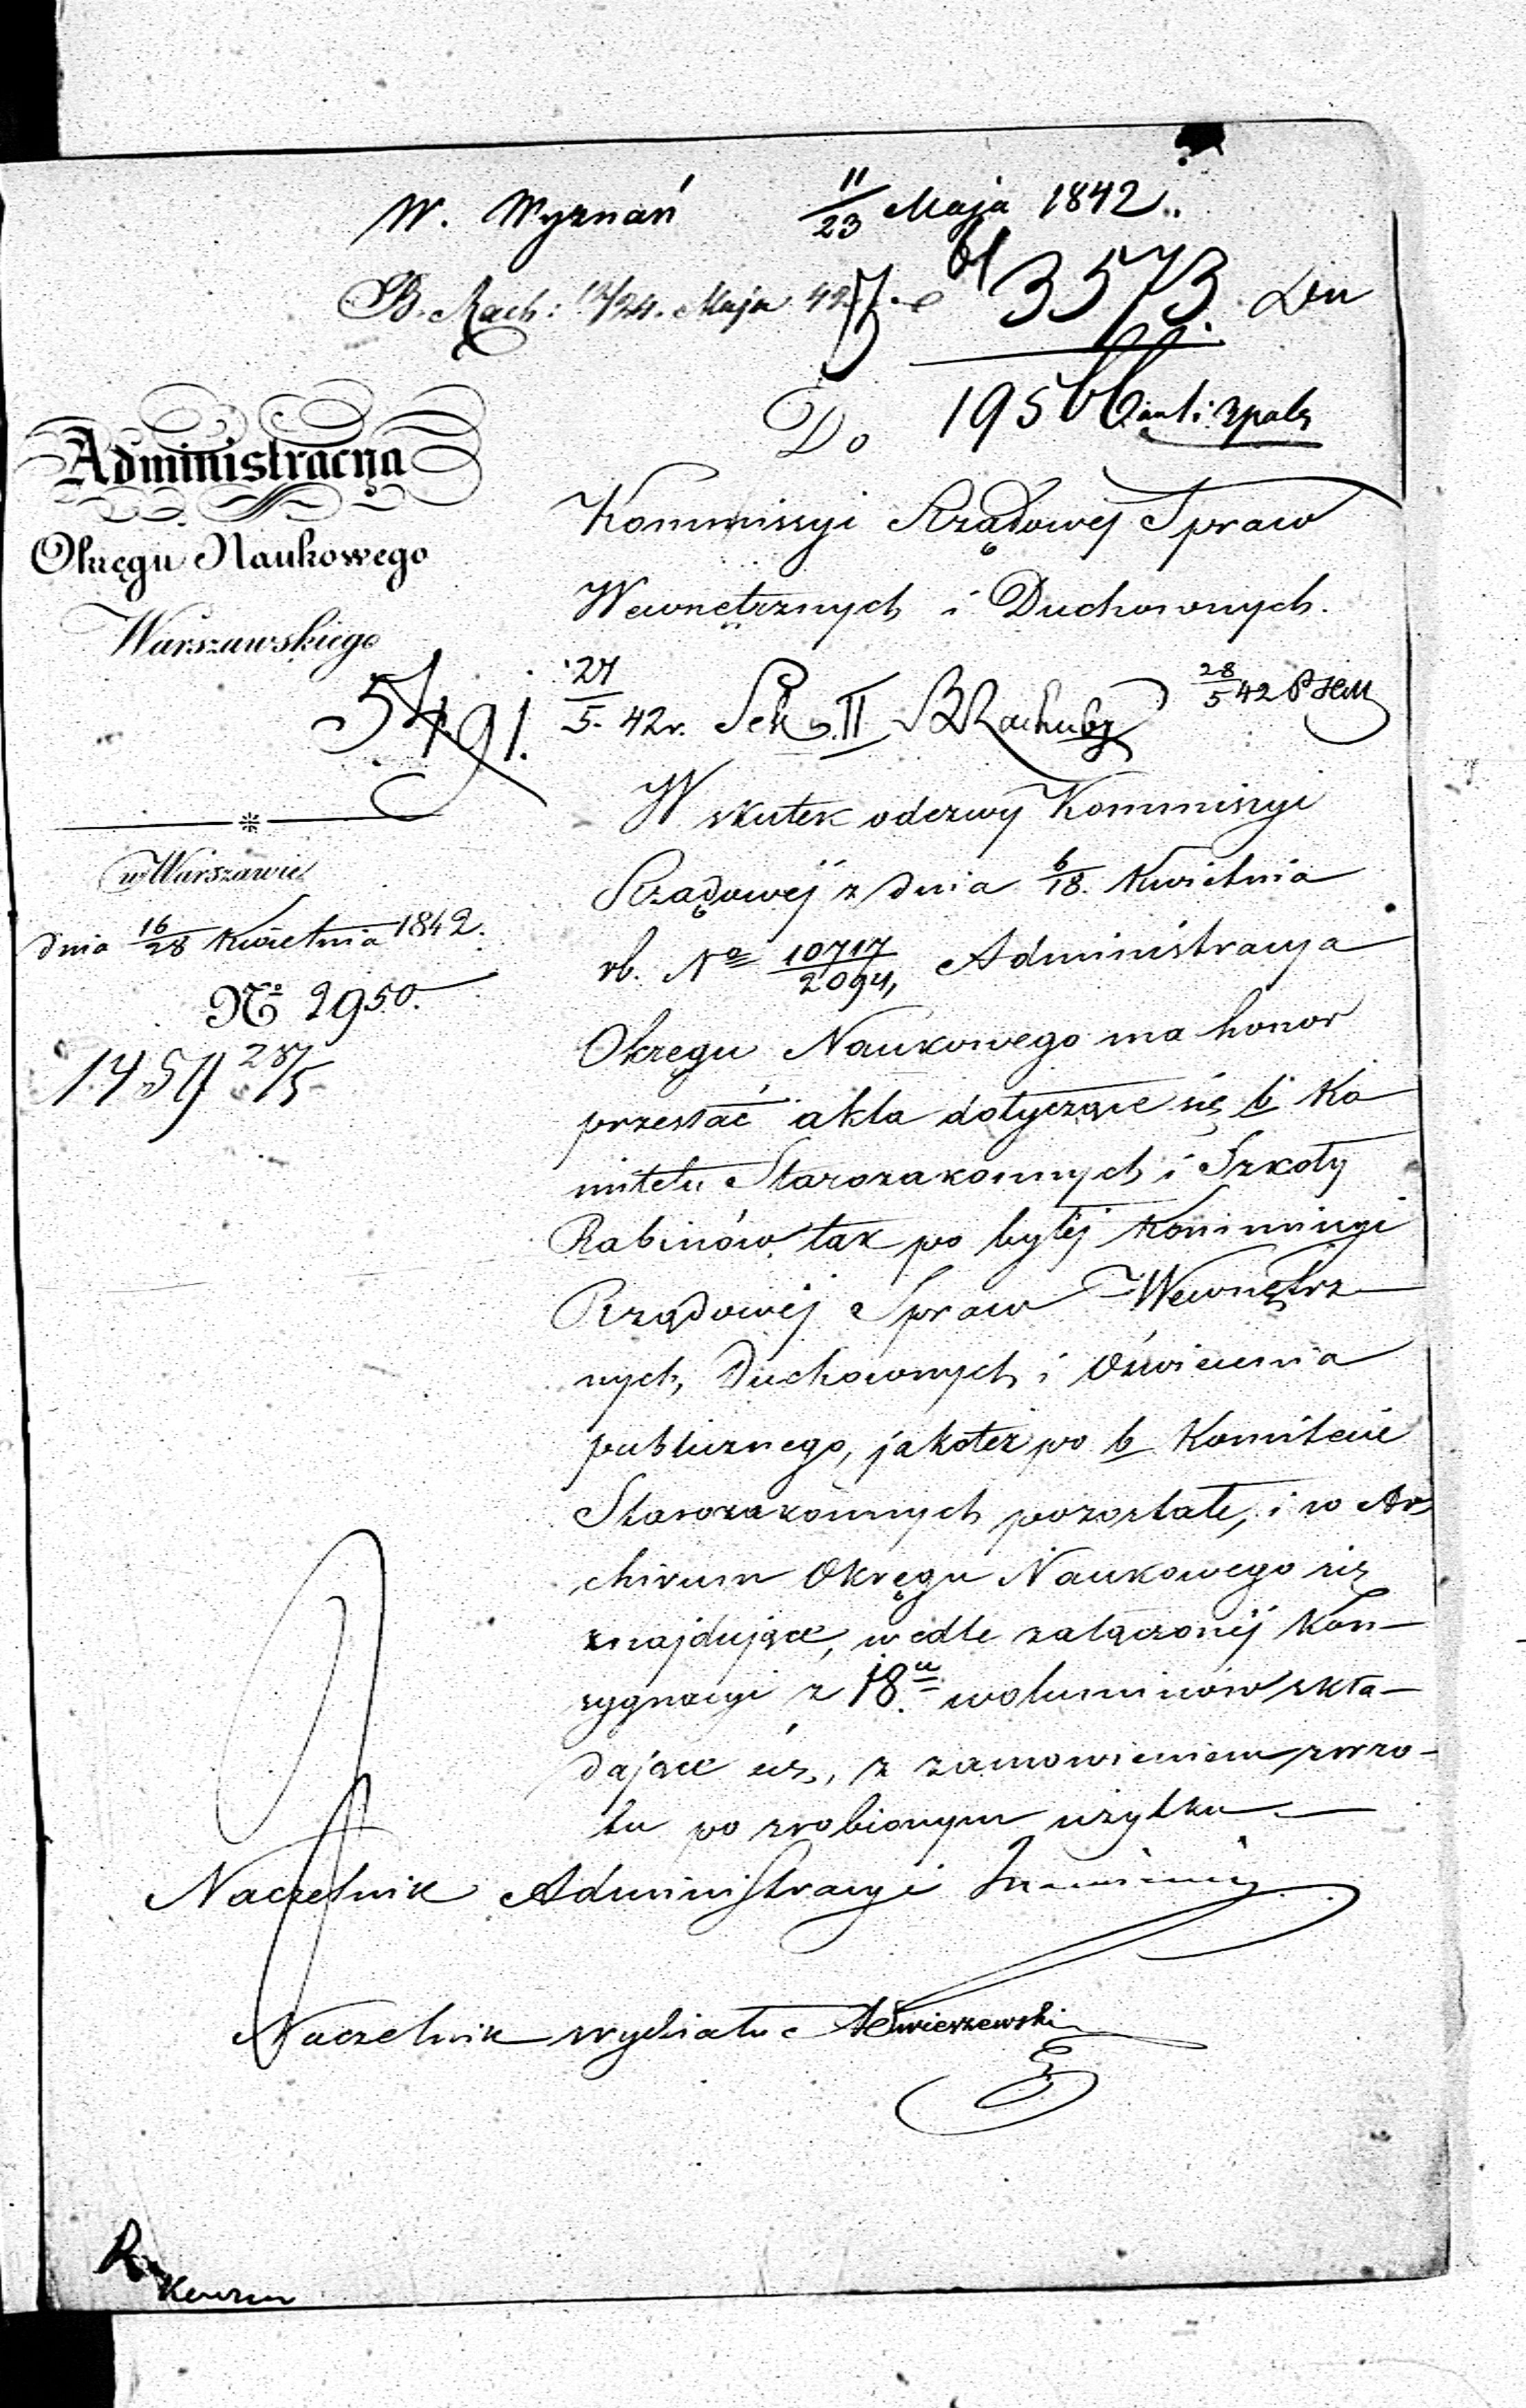 W. Wyznań 11/23 Maja 1842.
B. Rach: 12/24. Maja 42
3573
Do 19566
Administracya
Okręgu Naukowego
Warszawskiego
5491.
w Warszawie
dnia 16/28 Kwietnia 1842.
No 2950.
Kommissyi Rządowej Spraw
Wewnętrznych i Duchownych.
27/5. 42r. Sek. II B Rachuby 28/5 42
W skutek odezwy Kommissyi
Rządowej z dnia 6/18. Kwietnia
rb. No 10717/2094, Administracya
Okręgu Naukowego ma honor
przesłać akta dotyczące się b Ko
mitetu Starozakonnych i Szkoły
Rabinów, tak po byłej Kommissyi
Rządowej Spraw Wewnętrz-
nych, Duchownych i Oświecenia
publicznego, jakoteż po b Komitecie
Starozakonnych pozostałe, i w Ar
chivum Okręgu Naukowego się
znajdujące, wedle załączonej Kon-
sygnacyi z 18u woluminów skła-
dające się, z zamowieniem zwro-
tu po zrobionym użytku.
Naczelnik Administracyi
Naczelnik wydziału